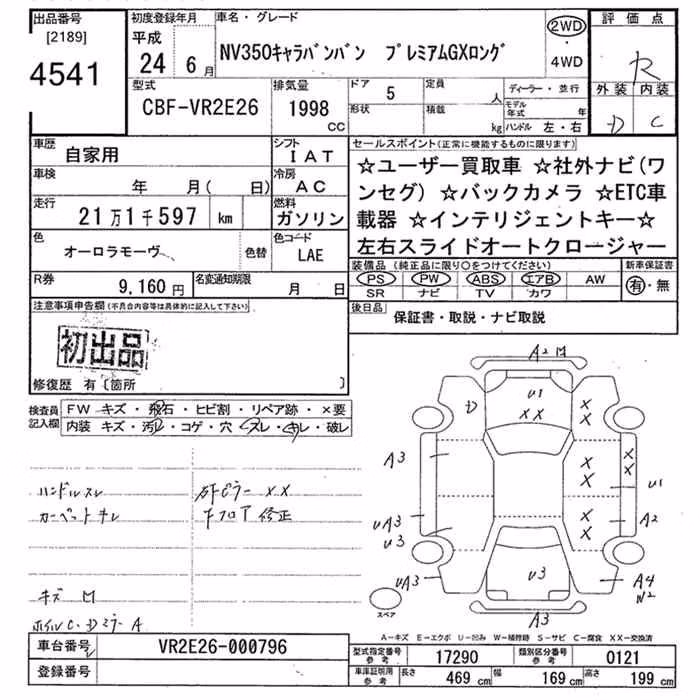 出品番号
[2189]
4541
初度登録年月
平成
24 6月
車名・グレード
NV350キャラバンバン プレミアムGXロング
2WD
・
4WD
評価点
R
外装 内装
D C
型式
CBF-VR2E26
排気量
1998
CC
ドア
5
定員
人
形状
積載
kg
ディーラー・並行
モデル年式 年
ハンドル 左・右
車歴
自家用
シフト
IAT
車検
年 月( 日)
冷房
AC
走行
21万1千597 km
燃料
ガソリン
色
オーロラモーヴ
色替
色コード
LAE
R券
9,160円
名変通知期限
月 日
セールスポイント(正常に機能するものに限ります)
☆ユーザー買取車 ☆社外ナビ(ワ
ンセグ) ☆バックカメラ ☆ETC車
載器 ☆インテリジェントキー☆
左右スライドオートクロージャー
装備品(純正品に限り○をつけてください)
PS PW ABS エアB AW
SR ナビ TV カワ
新車保証書
有・無
後日品
保証書・取説・ナビ取説
注意事項申告欄(不具合内容等は具体的に記入して下さい)
初出品
修復歴 有〔箇所 〕
検査員記入欄
FW キズ・飛石・ヒビ割・リペア跡・×要
内装 キズ・汚レ・コゲ・穴・スレ・キレ・破レ
ハンドルスレ
カーペットキレ
ピラー XX
フロア 修正
キズ M
ミラー A
A2 M
U1
XX
D
X
X
X
X
X
X
X
X
A3
U1
UA3
U3
A2
UA3
U3
A4
W2
A3
スペア
A-キズ E-エクボ U-凹み W-補修跡 S-サビ C-腐食 XX-交換済
車台番号
VR2E26-000796
登録番号
型式指定番号
参考
17290
類別区分番号
参考
0121
車庫証明用
参考
長さ 469 cm
幅 169 cm
高さ 199 cm